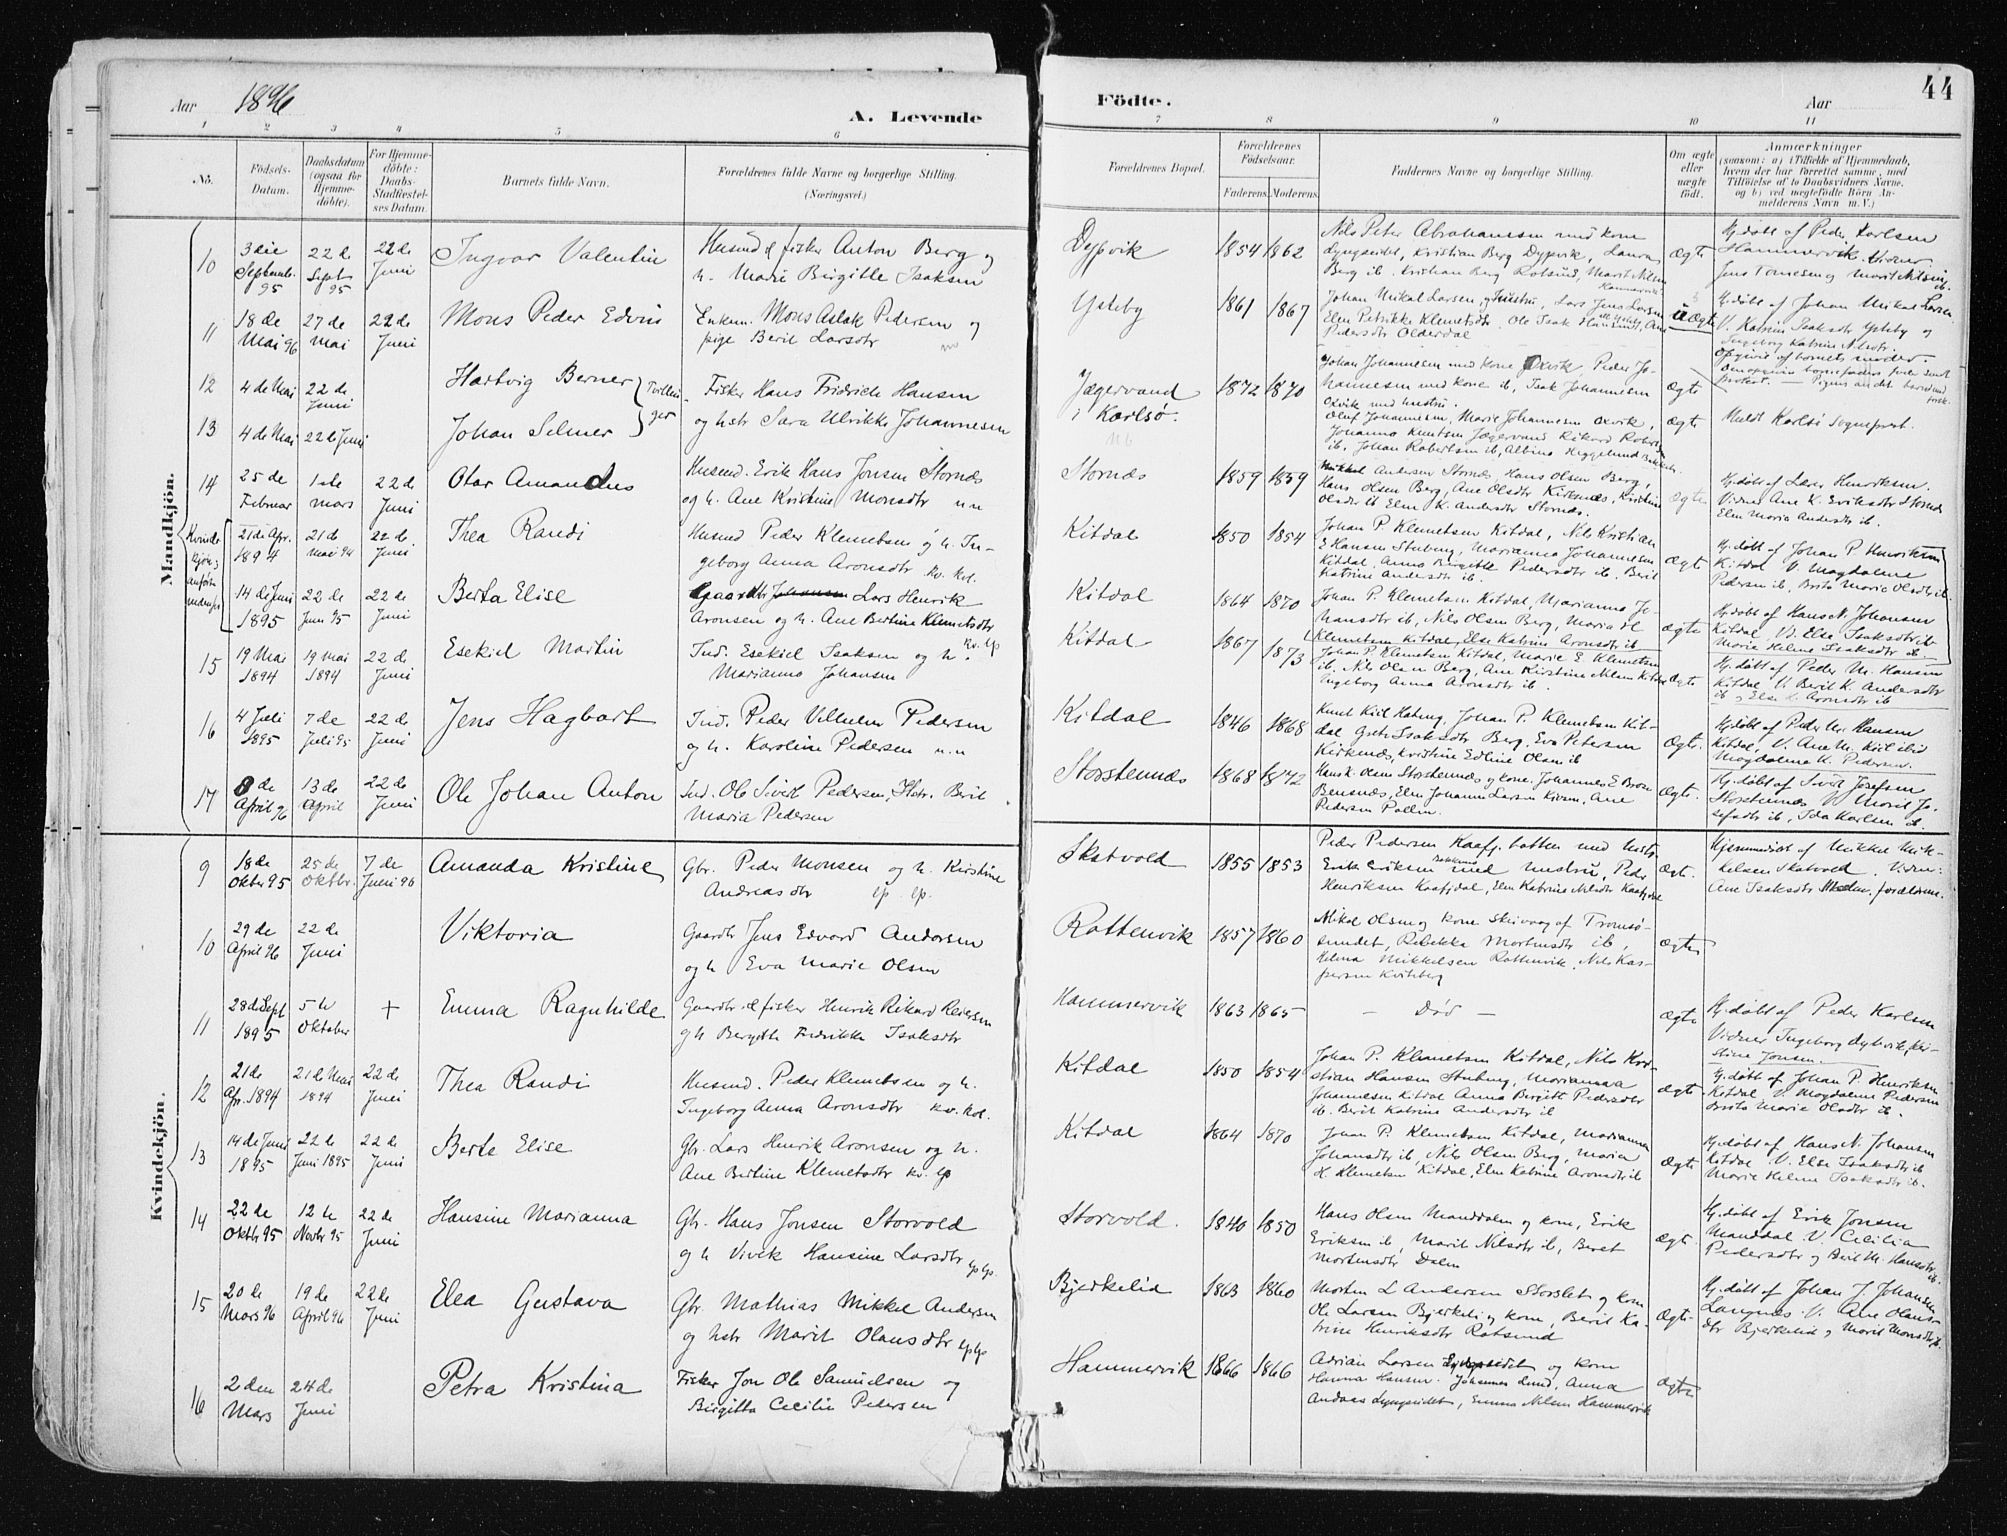 44
Aar 1896
A. Levende
Födte.
Aar
1 2 3 4 5 6 7 8 9 10 11
No.
Födsels-Datum.
Daabsdatum (ogsaa for Hjemme-döbte).
For Hjemme-döbte: Daabs-Stadfæstel-ses Datum.
Barnets fulde Navn.
Forældrenes fulde Navne og borgerlige Stilling.
(Næringsvei.)
Forældrenes Bopæl.
Forældrenes Födselsaar.
Faderens. Moderens.
Faddernes Navne og borgerlige Stilling.
Om ægte eller uægte födt.
Anmærkninger
(saasom: a) i Tilfælde af Hjemmedaab,
hvem der har forrettet samme, med
Tilföielse af to Daabsvidners Navne,
og b) ved uægtefödte Börn An-
melderens Navn m. V.)
Mandkjön.
10 3die Septemb. 95 22de Sept 95 22de Juni Ingvar Valentin Husmd & fisker Anton Berg og
h. Marie Birgitte Isaksen
Dypvik 1854 1862 Nils Peter Abrahamsen med kone
Lyngseidet, Kristian Berg Dypvik, Laura
Berg ib. Kristian Berg Rotsund, Marit Nilsen
ægte Hj. döbt af Peder Karlsen
Hammervik
11 18de Mai 96 27de Mai 22de Juni Mons Peder Edvin Enkem. Mons Aslak Pedersen og
pige Beril Larsdtr
Ysteby 1861 1867 Johan Mikal Larsen, Hustru, Lars Jens Larsen
Elen Petrikke Klemetsdtr. Ole Isak
Pedersdtr Olderdal
uægte Hj. döbt af Johan Mikal Larsen
V. Katrin Isaksdtr Ysteby og
Ingeborg Katrine Nilsdtr.
12 4de Mai 22de Juni Hartvig Berner Tvillinger Fisker Hans Fridrich Hansen
Jægervand i Karlsö. 1872 1870 Johan Johannesen med kone Oxvik, Peder Jo-
hannesen med kone ib, Isak Johannesen
Oxvik med hustru.
ægte
13 4de Mai 22de Juni Johan Selmer og hstr Sara Ulrikke Johannesen
Oluf Johannesen, Marie Johannesen Oxvik,
Johanna Knutsen Jægervand Rikard Roberts
ib, Johan Robertsen ib, Albina Heggelund
ægte Meldt Karlsö Sogneprest.
14 25de Februar 1ste mars 22de Juni Otar Amandus Husmd. Erik Hans Jonsen Stornæs
og h. Ane Kristine Monsdtr n.n
Stornæs 1859 1859 Mikkel Andersen Stornæs, Hans Olsen Berg,
Hans Olsen Berg, Ane Olsdtr Kirkenæs, Kirstine
Olsdtr ib Elen K. Andersdtr Stornæs.
ægte Hj. döbt af Lærer Henriksen.
Vidner Ane K. Eriksdtr Stornæs
Elen Maria Andersdtr ib.
21de Apr. 1894 21de mai 94 22de Juni Thea Randi Husmd Peder Klemetsen og h. In-
geborg Anna Aronsdtr kv. kol.
Kitdal 1850 1854 Johan P. Klemetsen Kitdal, Nils Kristian
E Hansen Stubeng, Marianna Johannesen
Kitdal, Anna Birgitte Pedersdtr ib. Beril
Katrine Andersdtr ib.
ægte Hj. döbt af Johan P. Henriksen
Kitdal V. Magdalene
Pedersen ib, Brita Marie Olsdtr ib
14de Juni 1895 22de Juni 95 22de Juni Berta Elise Gaardbr Johansen Lars Henrik
Aronsen og h. Ane Bertine Klemetsdtr kv. lp
Kitdal 1864 1870 Johan P. Klemetsen Kitdal, Marianna Jo-
hansdtr ib, Nils Olsen Berg, Maria H
Klemetsen Kitdal, Else Katrine Aronsdtr ib
ægte Hj. döbt af Hans N. Johansen
Kitdal V. Else Isaksdtr ib
Marie Helene Isaksdtr ib.
15 19 Mai 1894 19 Mai 1894 22de Juni Esekiel Martin Ind. Esekiel Isaksen og h.
Marianna Johansen
Kitdal 1867 1873 Johan P. Klemetsen Kitdal, Marie E. Klemetsen
ib. Nils Olsen Berg, Ane Kirstine Nilsen Kitdal
Ingeborg Anna Aronsdtr ib.
ægte Hj. döbt af Peder M. Hansen
Kitdal V. Beril K. Andersdtr
ib og Else K. Aronsdtr ib
16 4 Juli 1895 7de Juli 95 22de Juni Jens Hagbart Ind. Peder Vilhelm Pedersen
og h. Karoline Pedersen n.n
Kitdal 1846 1868 Johan P. Klemetsen Kit-
dal Isaksdtr Berg, Eva Petersen
Kirkenæs, Kristine Edline Olsen ib
ægte. Hj. döbt af Peder M. Hansen
Kitdal, V. Ane M. Kiil
Magdalena K. Pedersen.
17 8de April 96 13de April 22de Juni Ole Johan Anton Ind. Ole Sivert Pedersen, Hstr. Beril
Maria Pedersen
Storstennæs 1868 1872 Hans K. Olsen Storstennæs og kone. Johannes E Brose
Bensnæs, Elen Johanna Larsen, Ane
Pedersen Pollen.
ægte. Hj. döbt af Sivert Josefsen
Storstennæs V. Maril Jo-
sefsdtr ib, Ida Karlsen ib.
Kvindekjön.
9 18de Oktbr 95 25de Oktbr. 7de Juni 96 Amanda Kristine Gbr. Peder Monsen og h. Kirstine
Andreasdtr lp. lp.
Skatvold 1855 1853 Peder Pedersen Kaafj. botten med hstr.
Erik Eriksen med hustru, Peder
Henriksen Kaafjdal, Elen Katrine Nilsdtr Kaafjdal
ægt. Hjemmedöbt af Mikkel Mik-
kelsen Skatvold. Vidner:
Ane Isaksdtr
10 29de April 96 22de Juni Viktoria Gaardbr Jens Edvard Andersen
og h Eva Marie Olsen
Rottenvik 1857 1860 Mikal Olsen og kone Skivaag af Tromsö-
sundet, Rebekka Mortensdtr ib,
Helena Mikkelsen Rottenvik, Nils Kas-
persen Kviteberg
ægte
11 28de Sept 1895 5te Oktober + Emma Ragnhilde Gaardbr & fisker Henrik Rikard Reiersen
og h Bergitte Fredrikke Isaksdtr
Hammervik 1863 1865 — Död — ægte Hj. döbt af Peder Karlsen
Vidner Ingeborg Dybvik, Kri-
stine Jonsen.
12 21de Apr. 1894 21de Mai 1894 22de Juni Thea Randi Husmd. Peder Klemetsen og h.
Ingeborg Anna Aronsdtr kv. kol.
Kitdal 1850 1854 Johan P. Klemetsen Kitdal, Nils Kri-
stian Hansen Stubeng, Marianna
Johannesen Kitdal Anna Birgitte Pedersdtr
ib. Berit Katrine Andersdtr ib
ægte Hj. döbt af Johan P. Henriksen
Kitdal V. Magdalene Pedersen
Brita Marie Olsdtr ib.
13 14de Juni 1895 22de Juni 1895 22de Juni Berte Elise Gbr. Lars Henrik Aronsen og h.
Ane Bertine Klemetsdtr kv. lp
Kitdal 1864 1870 Johan P. Klemetsen Kitdal, Marianna
Johansdtr ib, Nils Olsen Berg, Maria
H. Klemetsen Kitdal, Elen Katrine Aronsdtr ib
ægte Hj. döbt af Hans N. Johansen
Kitdal V. Else Isaksdtr ib
Marie Helene Isaksdtr ib.
14 22de Oktbr 95 12te Novbr 95 22de Juni Hansine Marianna Gbr. Hans Jonsen Storvold
og h Vivik Hansine Larsdtr lp lp.
Storvold. 1840 1850 Hans Olsen Manddalen og kone, Erik
Eriksen ib, Marit Nilsdtr ib, Beret
Mortensdtr Dalen
ægt. Hj. döbt af Erik Jonsen
Manddal V. Cecilia
Pedersdtr og Beril M. Hansdtr ib.
15 20de Mars 96 19de April 96 22de Juni Elea Gustava Gbr. Mathias Mikkel Andersen
og hstr Marit Olausdtr lp lp
Bjerkelid 1863 1860 Morten L Andersen Storslet og kone
Ole Larsen Bjerkeli og kone, Beril Ka-
trine Henriksdtr Rotsund
ægte Hj. döbt af Johan J. Johansen
Langnes. V. Ane Olaus-
dtr Bjerkelid og Marit Monsdtr ib.
16 2den Mars 24de Juni Petra Kristina Fisker Jon Ole Samuelsen og
Birgitta Cecilie Pedersen
Hammervik 1866 1866 Adrian Larsen Lyngseidet og kone
Hanna Hansen. Johannes Lund, Anna
Andaas Lyngseidet, Emma Nilsen Hammervik
ægte